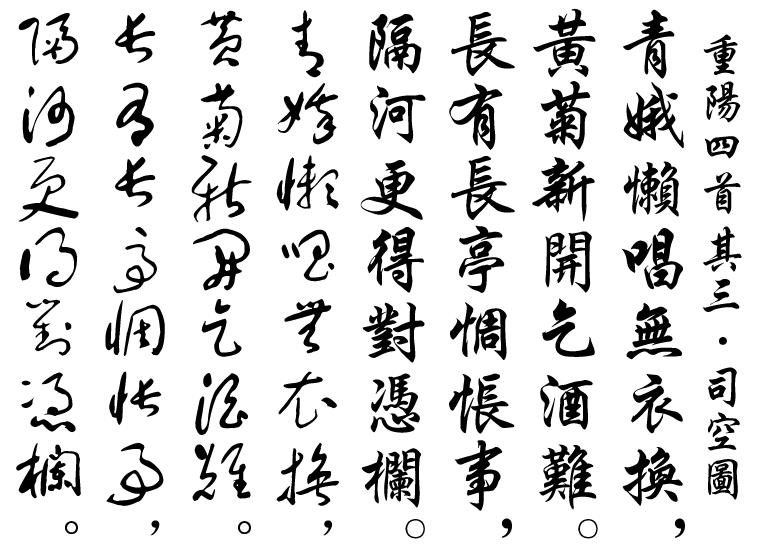 重陽四首其三·司空圖
青娥懶唱無衣換，
黃菊新開乞酒難。
長有長亭惆悵事，
隔河更得對憑欄。
青娥懶唱無衣換，
黃菊新開乞酒難。
長有長亭惆悵事，
隔河更得對憑欄。